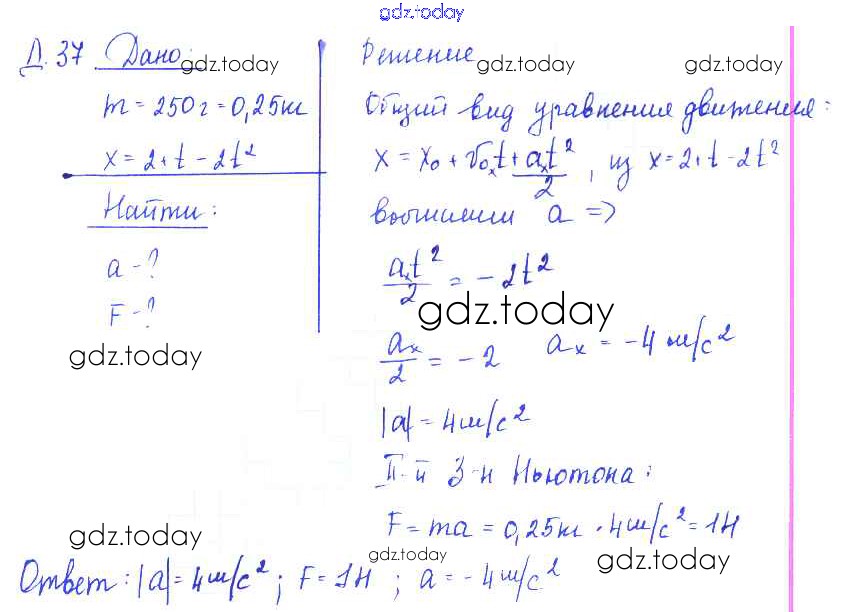 gdz.today
Д. 37 Дано:
gdz.today
m = 250г = 0,25кг
x = 2 + t - 2t²
Найти:
a - ?
F - ?
gdz.today
Решение
gdz.today
gdz.today
Общий вид уравнения движения:
x = x₀ + v₀ₓt + aₓt²/2, из x = 2 + t - 2t²
вычислим a =>
aₓt²/2 = - 2t²
gdz.today
aₓ/2 = - 2 aₓ = - 4 м/с²
|a| = 4м/с²
II-й З-н Ньютона:
F = ma = 0,25кг · 4м/с² = 1Н
gdz.today
gdz.today
gdz.today
Ответ: |a| = 4м/с²; F = 1Н; a = - 4м/с²